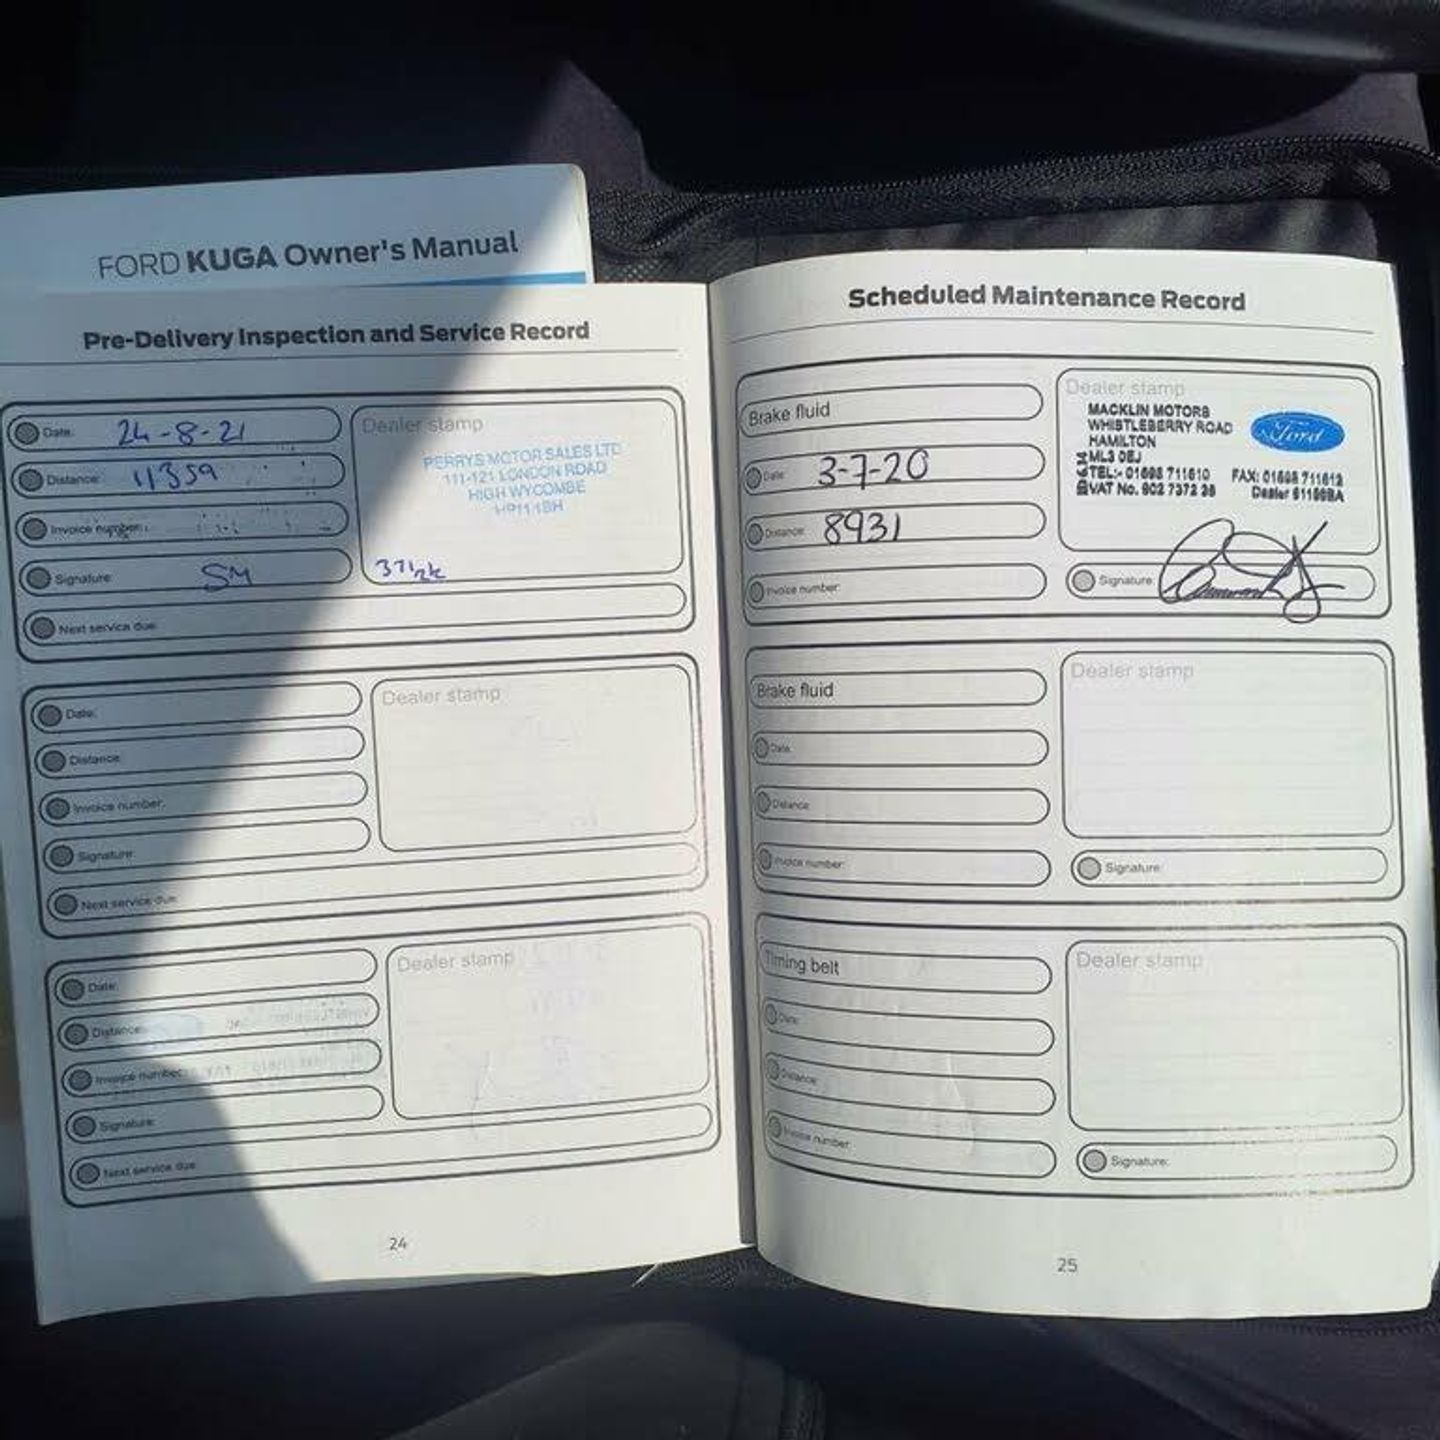 FORD KUGA Owner's Manual
Pre-Delivery Inspection and Service Record
Date: 24-8-21
Distance: 11359
Invoice number:
Signature: SM
Next service due:
Dealer stamp
PERRYS MOTOR SALES LTD
111-121 LONDON ROAD
HIGH WYCOMBE
HP11 1BH
Date:
Distance:
Invoice number:
Signature:
Next service due:
Dealer stamp
Date:
Distance:
Invoice number:
Signature:
Next service due:
Dealer stamp
24
Scheduled Maintenance Record
Brake fluid
Date: 3-7-20
Distance: 8931
Invoice number:
Dealer stamp
MACKLIN MOTORS
WHISTLEBERRY ROAD
HAMILTON
ML3 0EJ
TEL:- 01698 711610 FAX: 01698 711612
VAT No. 902 7372 38
Ford
Signature:
Brake fluid
Date:
Distance:
Invoice number:
Dealer stamp
Signature:
Timing belt
Date:
Distance:
Invoice number:
Dealer stamp
Signature:
25